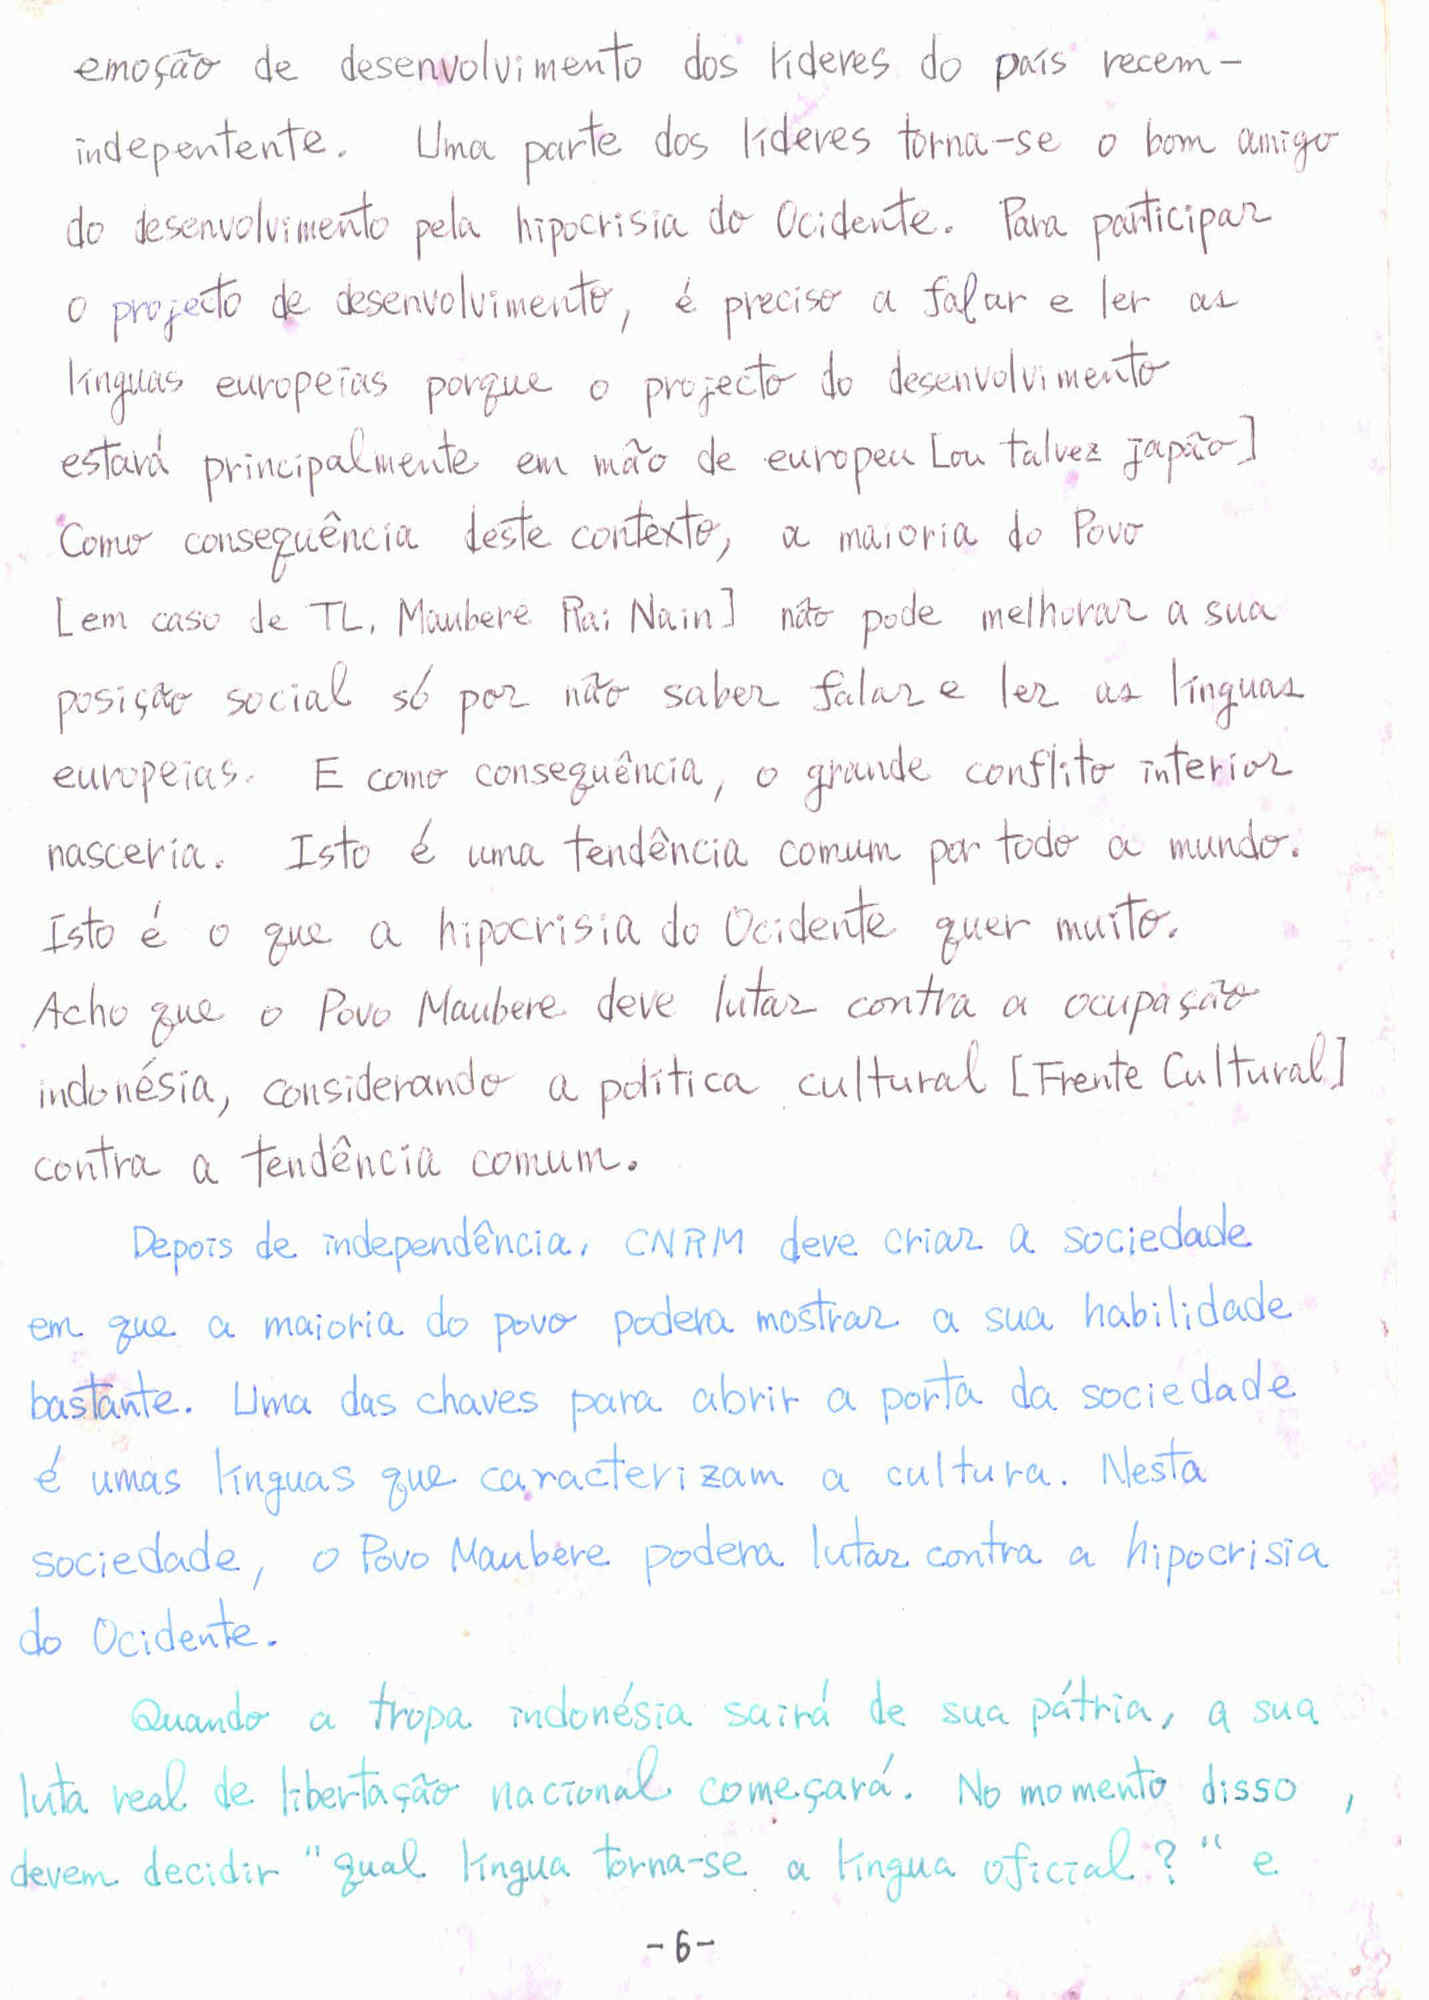 emoção de desenvolvimento dos líderes do país recem-
indepentente. Uma parte dos líderes torna-se o bom amigo
do desenvolvimento pela hipocrisia do Ocidente. Para participar
o projecto de desenvolvimento, é preciso a falar e ler as
línguas europeias porque o projecto do desenvolvimento
estará principalmente em mão de europeu [ou talvez japão]
Como consequência deste contexto, a maioria do Povo
[em caso de TL, Maubere Rai Nain] não pode melhorar a sua
posição social só por não saber falar e ler as línguas
europeias. E como consequência, o grande conflito interior
nasceria. Isto é uma tendência comum por todo a mundo.
Isto é o que a hipocrisia do Ocidente quer muito.
Acho que o Povo Maubere deve lutar contra a ocupação
indonésia, considerando a política cultural [Frente Cultural]
contra a tendência comum.
Depois de independência, CNRM deve criar a sociedade
em que a maioria do povo podera mostrar a sua habilidade
bastante. Uma das chaves para abrir a porta da sociedade
é umas línguas que caracterizam a cultura. Nesta
sociedade, o Povo Maubere podera lutar contra a hipocrisia
do Ocidente.
Quando a tropa indonésia sairá de sua pátria, a sua
luta real de libertação nacional começará. No momento disso,
devem decidir "qual língua torna-se a língua oficial?" e
-6-